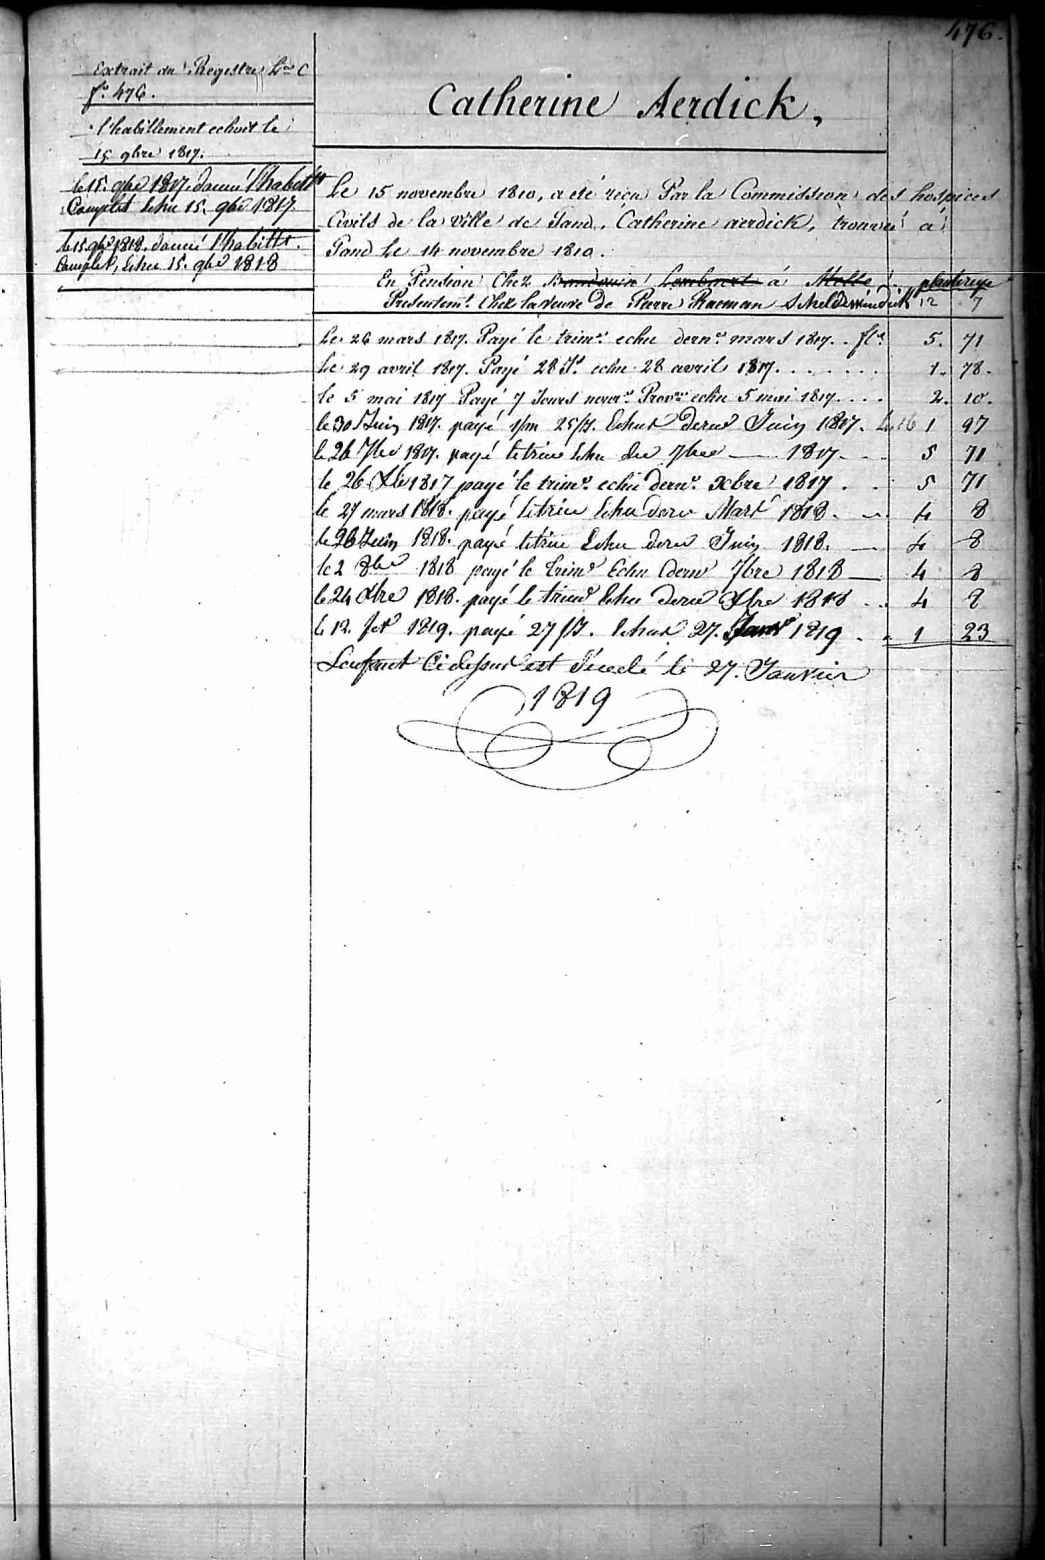 476.
Extrait du Registre L.re C
f.o 476.
l'habillement echoit le
15 9bre 1817.
le 15. 9bre 1817. donné l'habillt
Complet Echu 15. 9bre 1817
le 15. 9bre 1818. donné l'habillt.
Complet, Echu 15. 9bre 1818
Catherine Aerdick,
Le 15 novembre 1810, a été reçu Par la Commission des hospices
Civils de la Ville de Gand, Catherine aerdick, trouveé á
Gand Le 14 novembre 1810.
En Pension Chez Lambaert á Melle
Presentem.t Chez la veuve de Pierre Raeman 12 7
Le 26 mars 1817. Payé le trim.e echu dern.r mars 1817. . fl.s 5. 71
Le 29 avril 1817. Payé 28 J.s echu 28 avril 1817. . . . . . . 1. 78.
le 5 mai 1817 Payé 7 Jours echu 5 mai 1817. . . . 2. 10.
le 30 Juin 1817. payé 1/m 25/J. Echus dernr Juin 1817. 1 97
le 26 7bre 1817. payé le trim Echu der 7bre — 1817. . . 5 71
le 26 Xbre 1817 payé le trim.e echu dern.r Xbre 1817 . . 5 71
le 27 mars 1818. payé le trim Echu dernr Mars 1818. . . 4 8
le 26 Juin 1818. payé le trim Echu dernr Juin 1818. — 4 8
le 2 8bre 1818 payé le trim.e Echu dernr 7bre 1818 — 4 8
le 24 Xbre 1818. payé le trime Echu dernr Xbre 1818 . . 4 8
le 12. fev 1819. payé 27/J. Echus 27. Janvr 1819 . . 1 23
L'enfant Ci dessus est décedé le 27. Janvier
1819